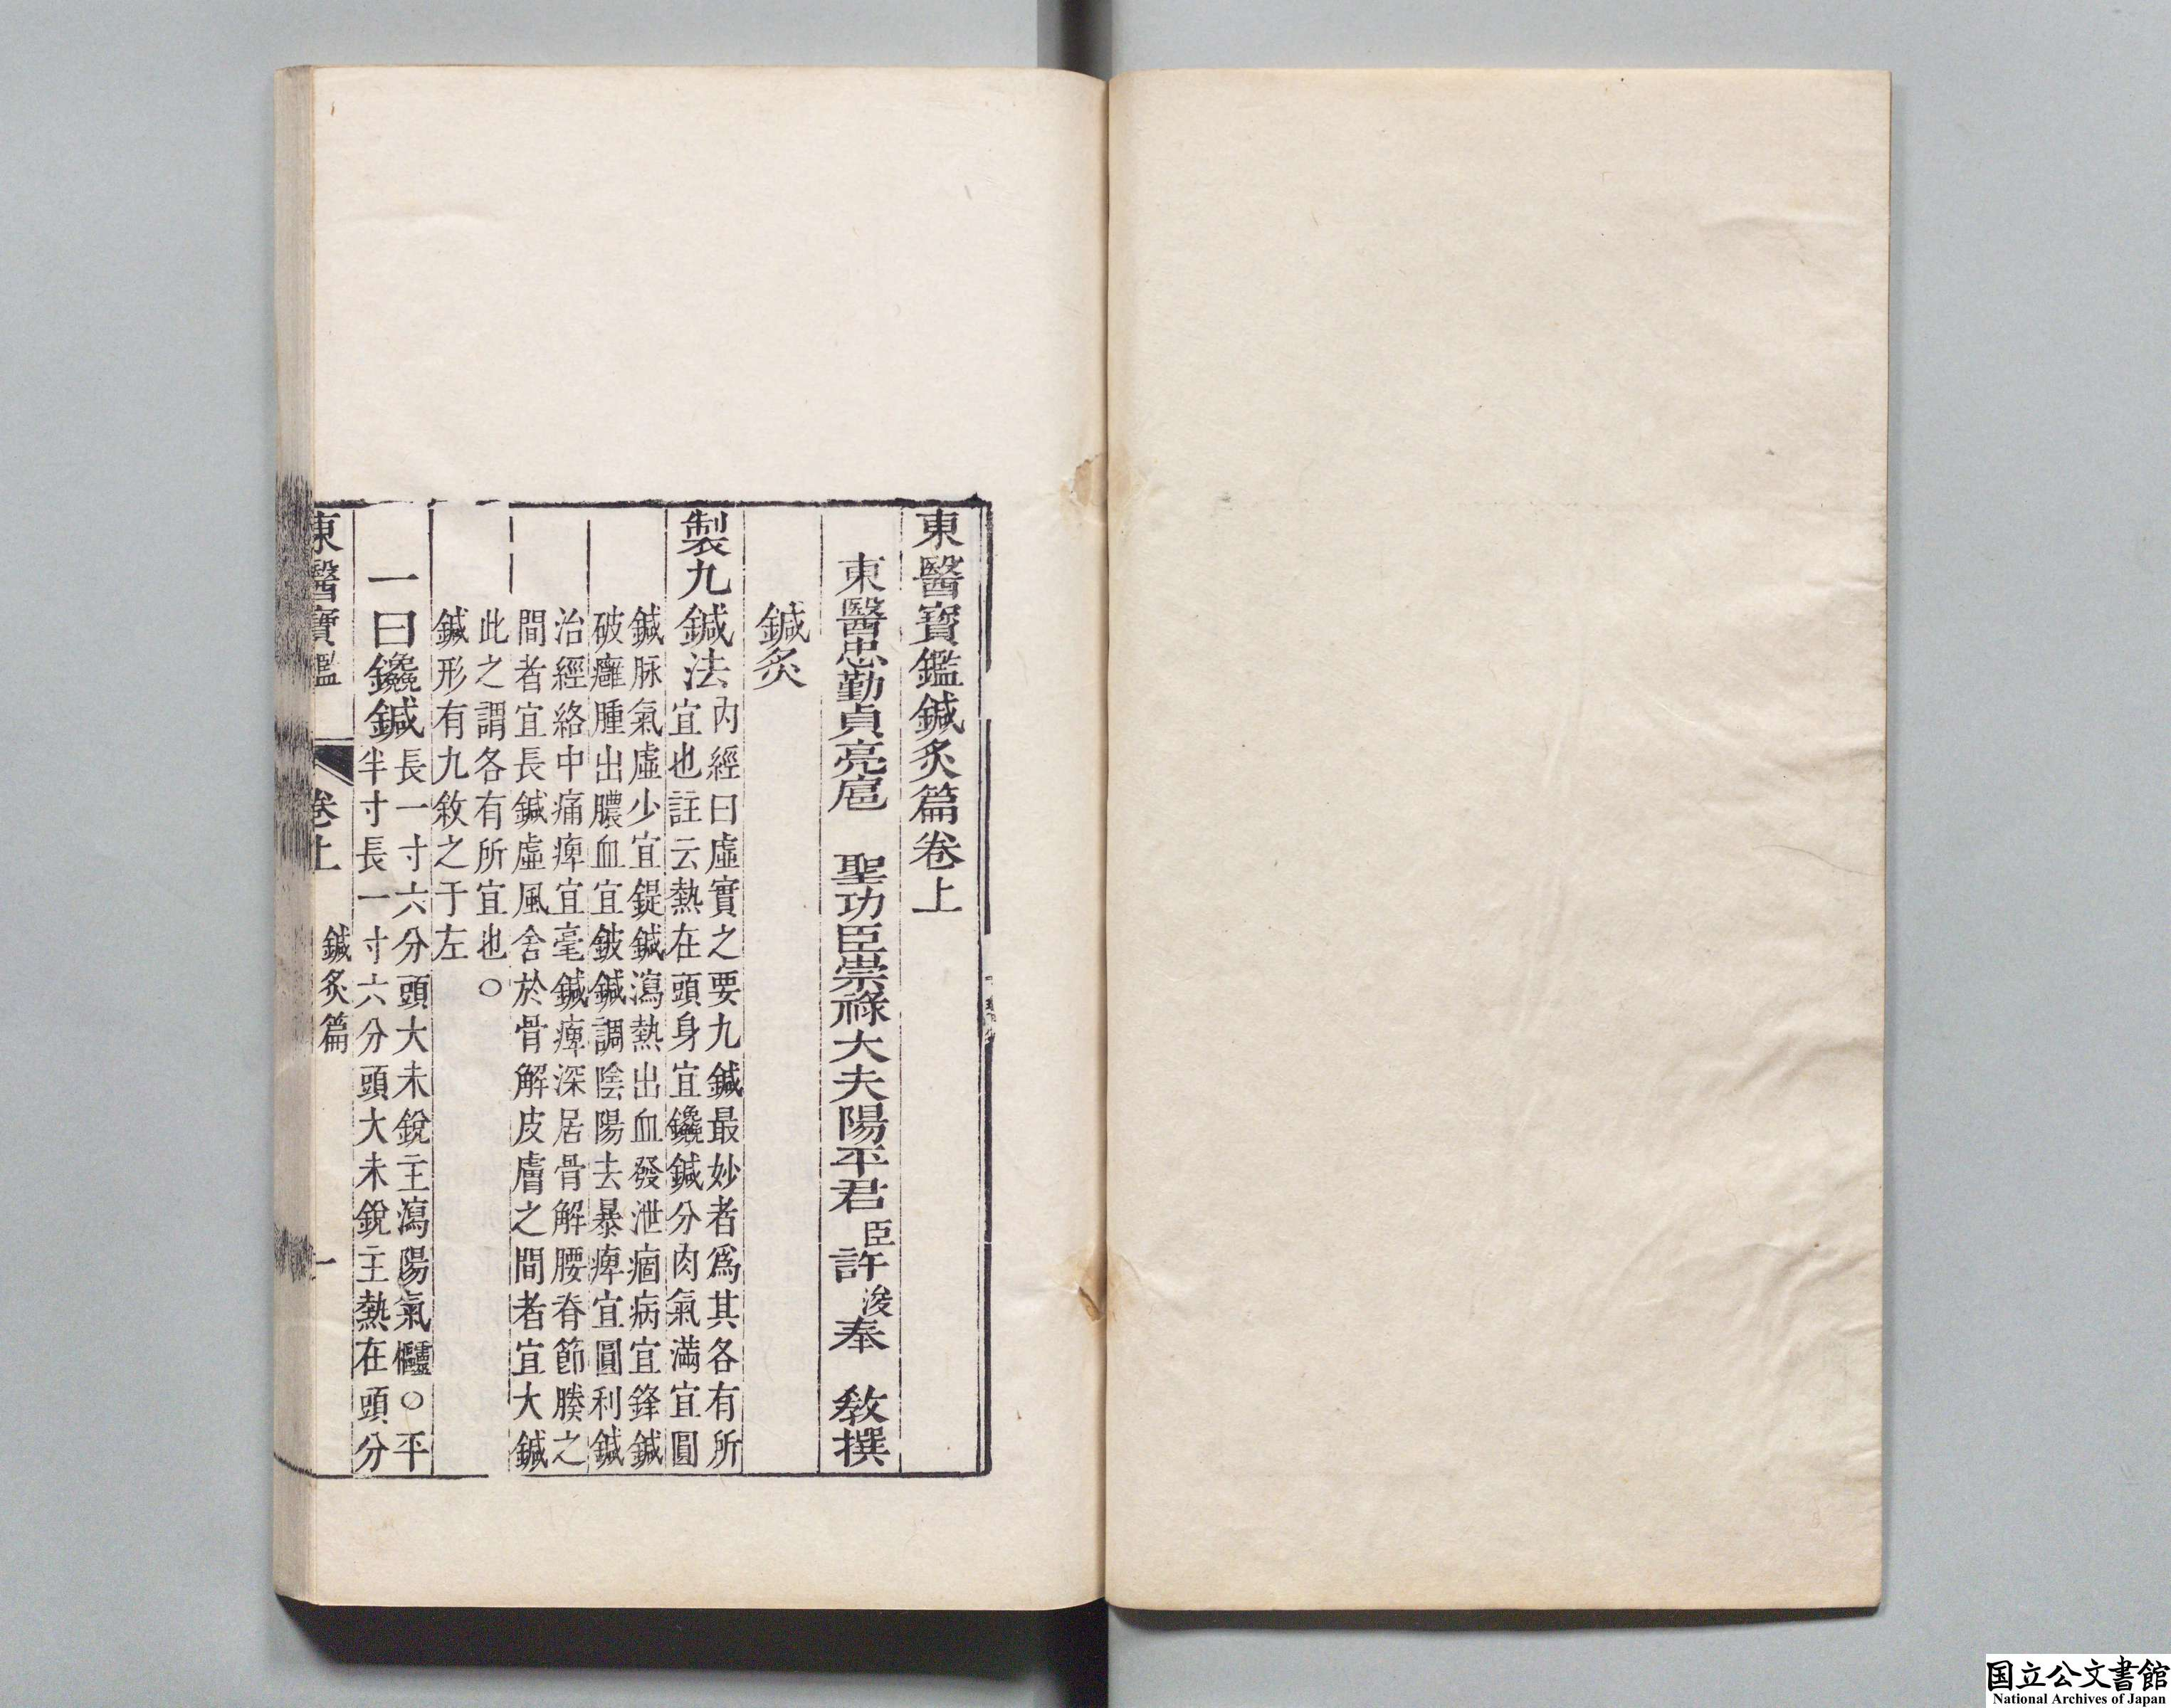 東醫寶鑑鍼炙篇卷上
東醫忠勤貞亮扈　聖功臣崇祿大夫陽平君臣許浚奉　敎撰
鍼炙
製九鍼法
內經曰虛實之要九鍼最妙者爲其各有所
宜也註云熱在頭身宜鑱鍼分肉氣滿宜圓
鍼脉氣虛少宜鍉鍼瀉熱出血發泄痼病宜鋒鍼
破癰腫出膿血宜鈹鍼調陰陽去暴痺宜圓利鍼
治經絡中痛痺宜毫鍼痺深居骨解腰脊節腠之
間者宜長鍼虛風舍於骨解皮膚之間者宜大鍼
此之謂各有所宜也○
鍼形有九敘之于左
一曰鑱鍼
長一寸六分頭大末銳主瀉陽氣○平
半寸長一寸六分頭大末銳主熱在頭分
東醫寶鑑　卷上　鍼炙篇　一
国立公文書館
National Archives of Japan